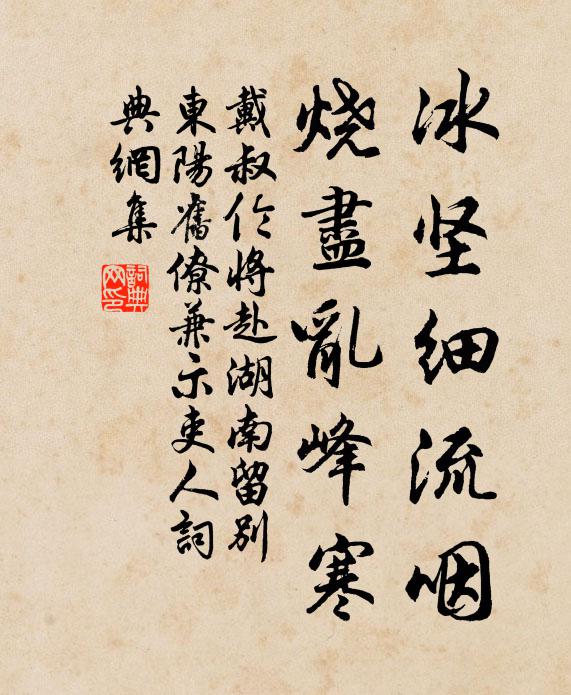 冰坚细流咽
烧盡亂峰寒
戴叔伦将赴湖南留别
東陽舊僚兼示吏人詞
典網集
詞典网印